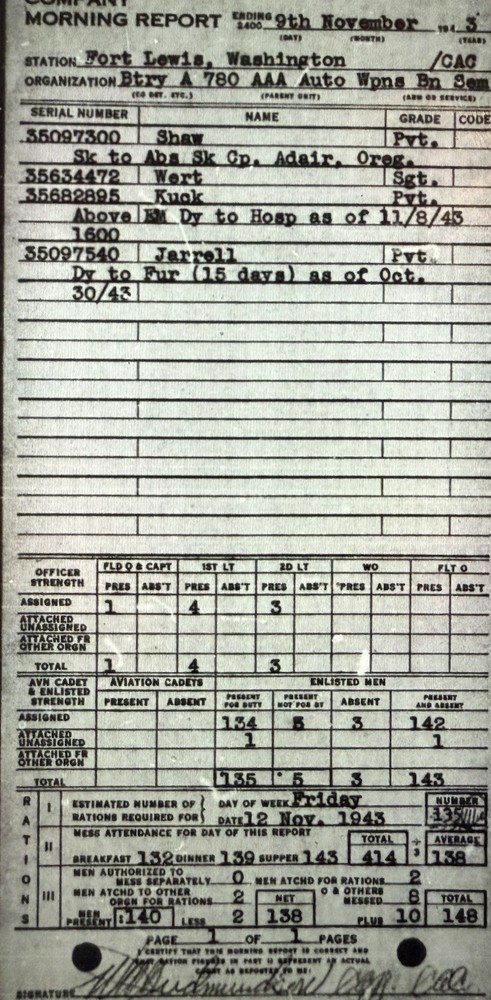 COMPANY
MORNING REPORT ENDING 2400 9th November 194 3
(DAY) (MONTH) (YEAR)
STATION Fort Lewis, Washington /CAC
ORGANIZATION Btry A 780 AAA Auto Wpns Bn Sem
(CO DET. ETC.) (PARENT UNIT) (ARM OR SERVICE)
SERIAL NUMBER NAME GRADE CODE
35097300 Shaw Pvt.
Sk to Abs Sk Cp. Adair, Oreg.
35634472 Wert Sgt.
35682895 Kuok Pvt.
Above EM Dy to Hosp as of 11/8/43
1600
35097540 Jarrell Pvt.
Dy to Fur (15 days) as of Oct.
30/43
OFFICER STRENGTH FLD O & CAPT 1ST LT 2D LT WO FLT O
PRES ABS'T PRES ABS'T PRES ABS'T PRES ABS'T PRES ABS'T
ASSIGNED 1 4 3
ATTACHED UNASSIGNED
ATTACHED FR OTHER ORGN
TOTAL 1 4 3
AVN CADET & ENLISTED STRENGTH AVIATION CADETS ENLISTED MEN
PRESENT ABSENT PRESENT FOR DUTY PRESENT NOT FOR DY ABSENT PRESENT AND ABSENT
ASSIGNED 134 5 3 142
ATTACHED UNASSIGNED 1 1
ATTACHED FR OTHER ORGN
TOTAL 135 5 3 143
RATIONS
I ESTIMATED NUMBER OF RATIONS REQUIRED FOR DAY OF WEEK Friday NUMBER
DATE 12 Nov. 1943 135
II MESS ATTENDANCE FOR DAY OF THIS REPORT TOTAL ÷ 3 AVERAGE
BREAKFAST 132 DINNER 139 SUPPER 143 414 138
III MEN AUTHORIZED TO MESS SEPARATELY 0 MEN ATCHD FOR RATIONS 2
MEN ATCHD TO OTHER ORGN FOR RATIONS 2 NET O & OTHERS MESSED 8 TOTAL
MEN PRESENT 140 LESS 2 138 PLUS 10 148
PAGE 1 OF 1 PAGES
I CERTIFY THAT THIS MORNING REPORT IS CORRECT AND
THAT RATION FIGURES IN PART II REPRESENT AN ACTUAL
COUNT AS REPORTED TO ME:
SIGNATURE